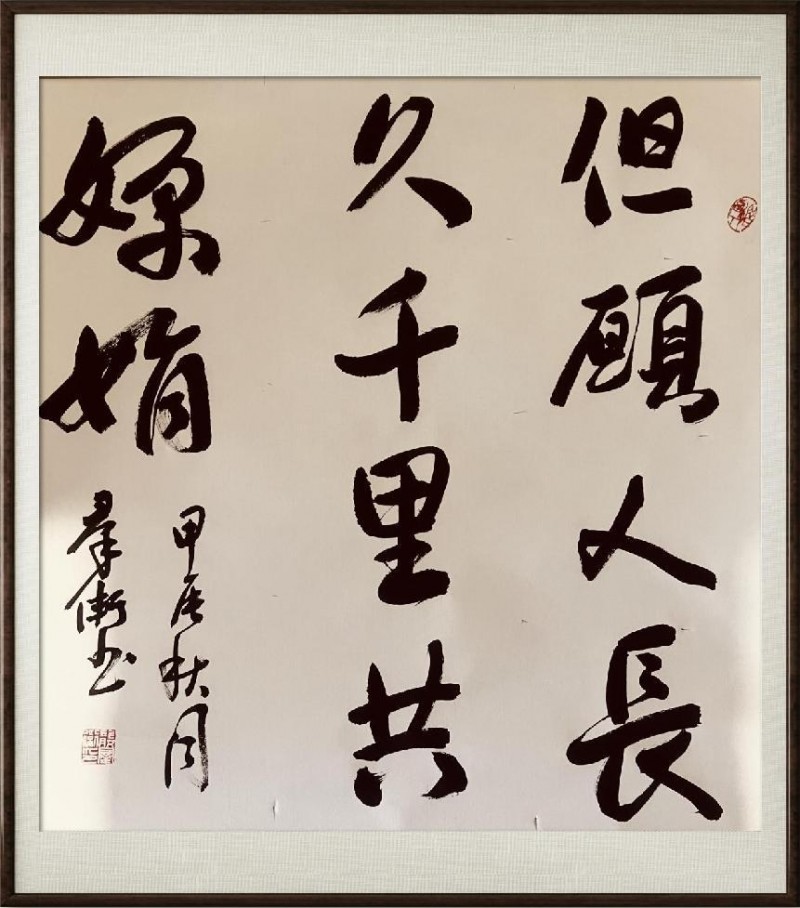 但願人長
久千里共
嬋娟
甲辰秋月
羣书